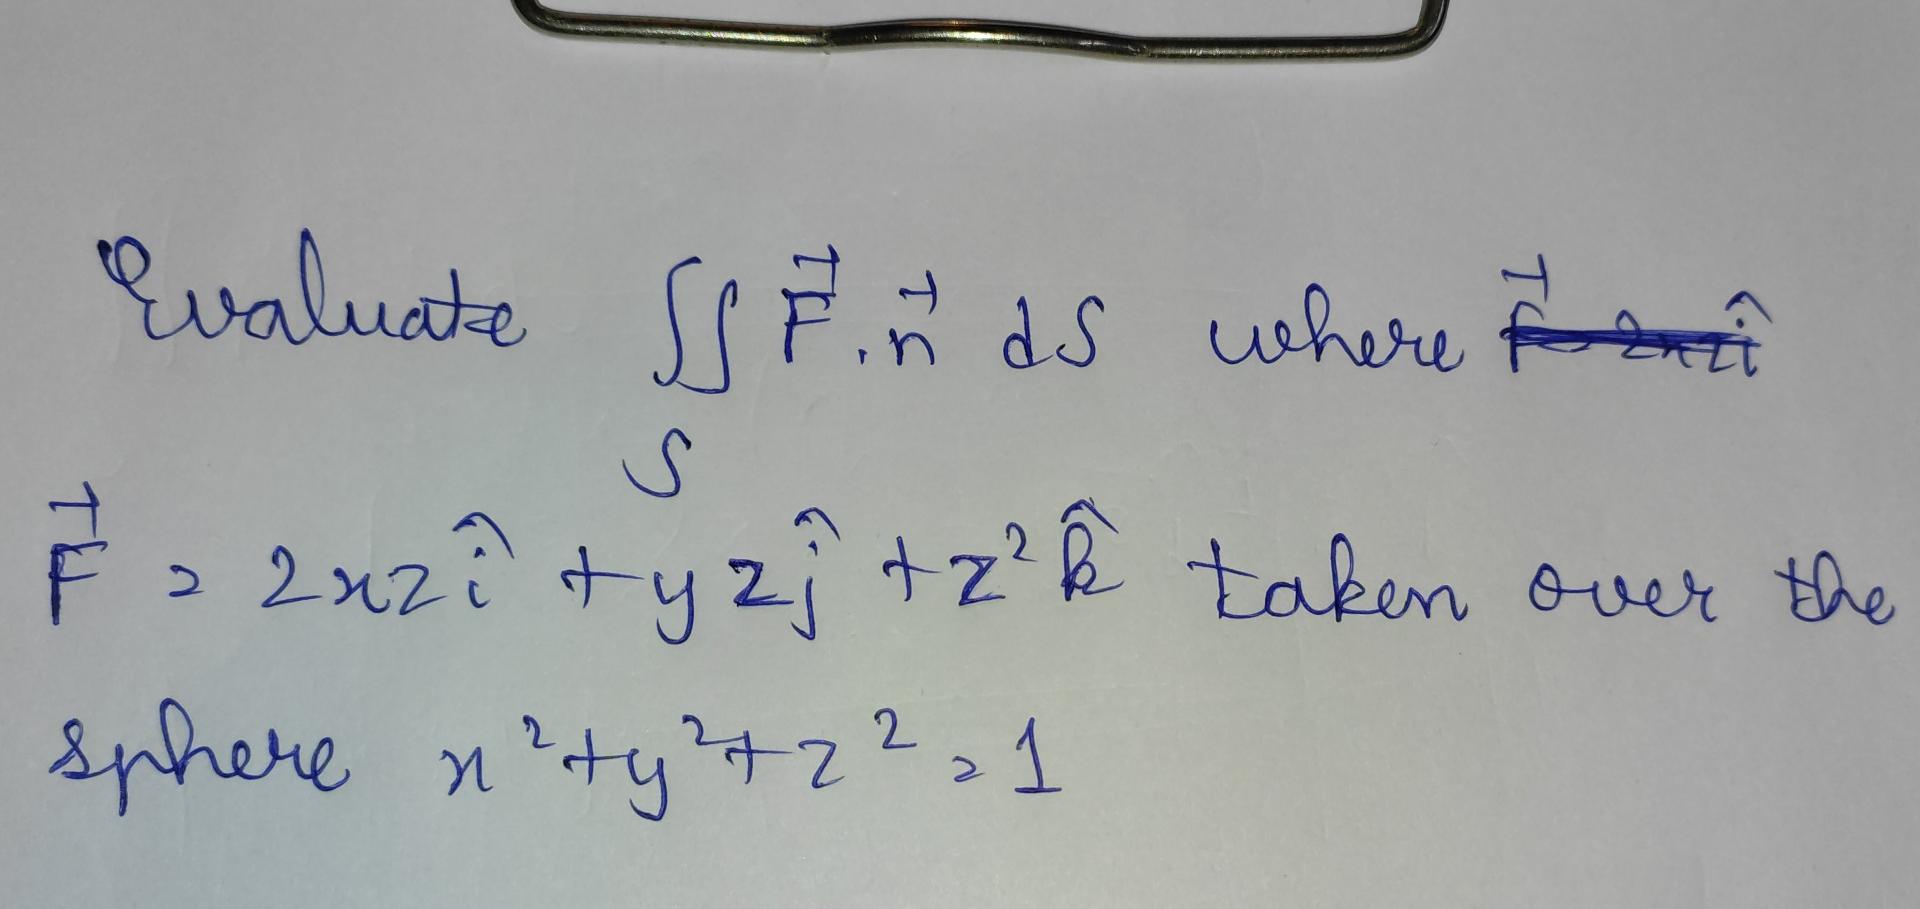 Evaluate ∬ F⃗.n⃗ dS where
S
F⃗ = 2xzî + yzĵ + z²k̂ taken over the
sphere x²+y²+z² = 1